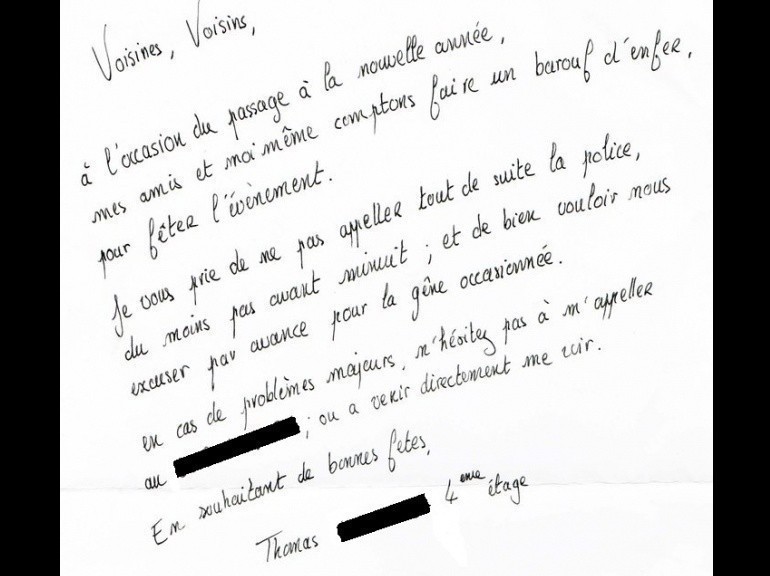 Voisines, Voisins,
à l'occasion du passage à la nouvelle année,
mes amis et moi même comptons faire un barouf d'enfer,
pour fêter l'évènement.
Je vous prie de ne pas appeller tout de suite la police,
du moins pas avant minuit ; et de bien vouloir nous
excuser par avance pour la gêne occasionnée.
en cas de problèmes majeurs, n'hésitez pas à m'appeller
au ; ou a venir directement me voir.
En souhaitant de bonnes fetes,
Thomas 4eme étage